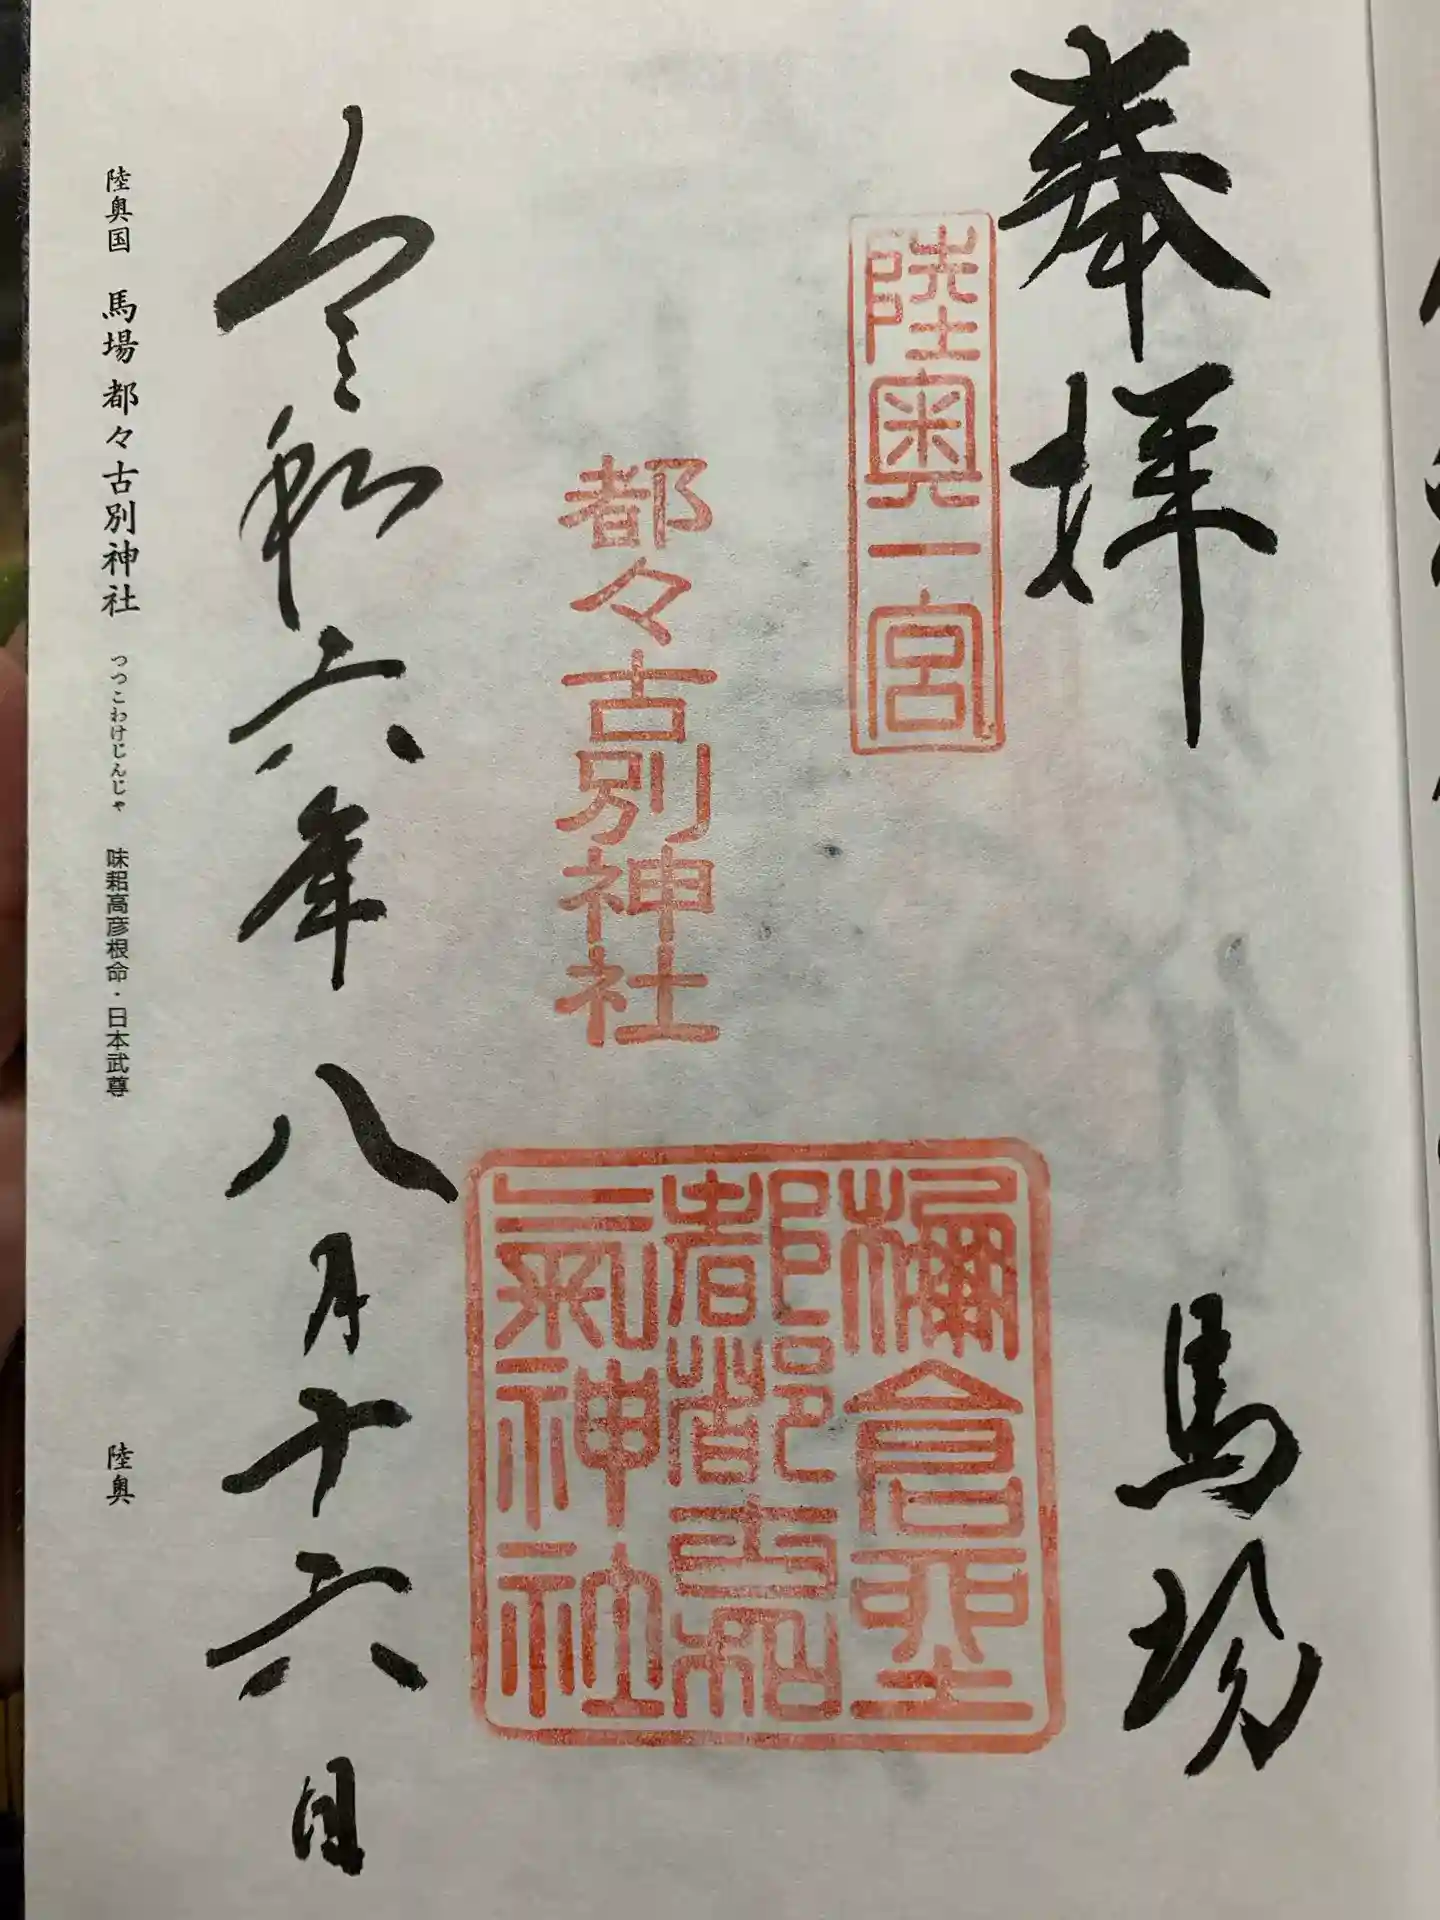 奉拝
馬場
陸奥一宮
都々古別神社
都都古和
氣神社
令和六年八月十六日
陸奥国 馬場 都々古別神社 つつこわけじんじゃ 味耜高彦根命・日本武尊 陸奥